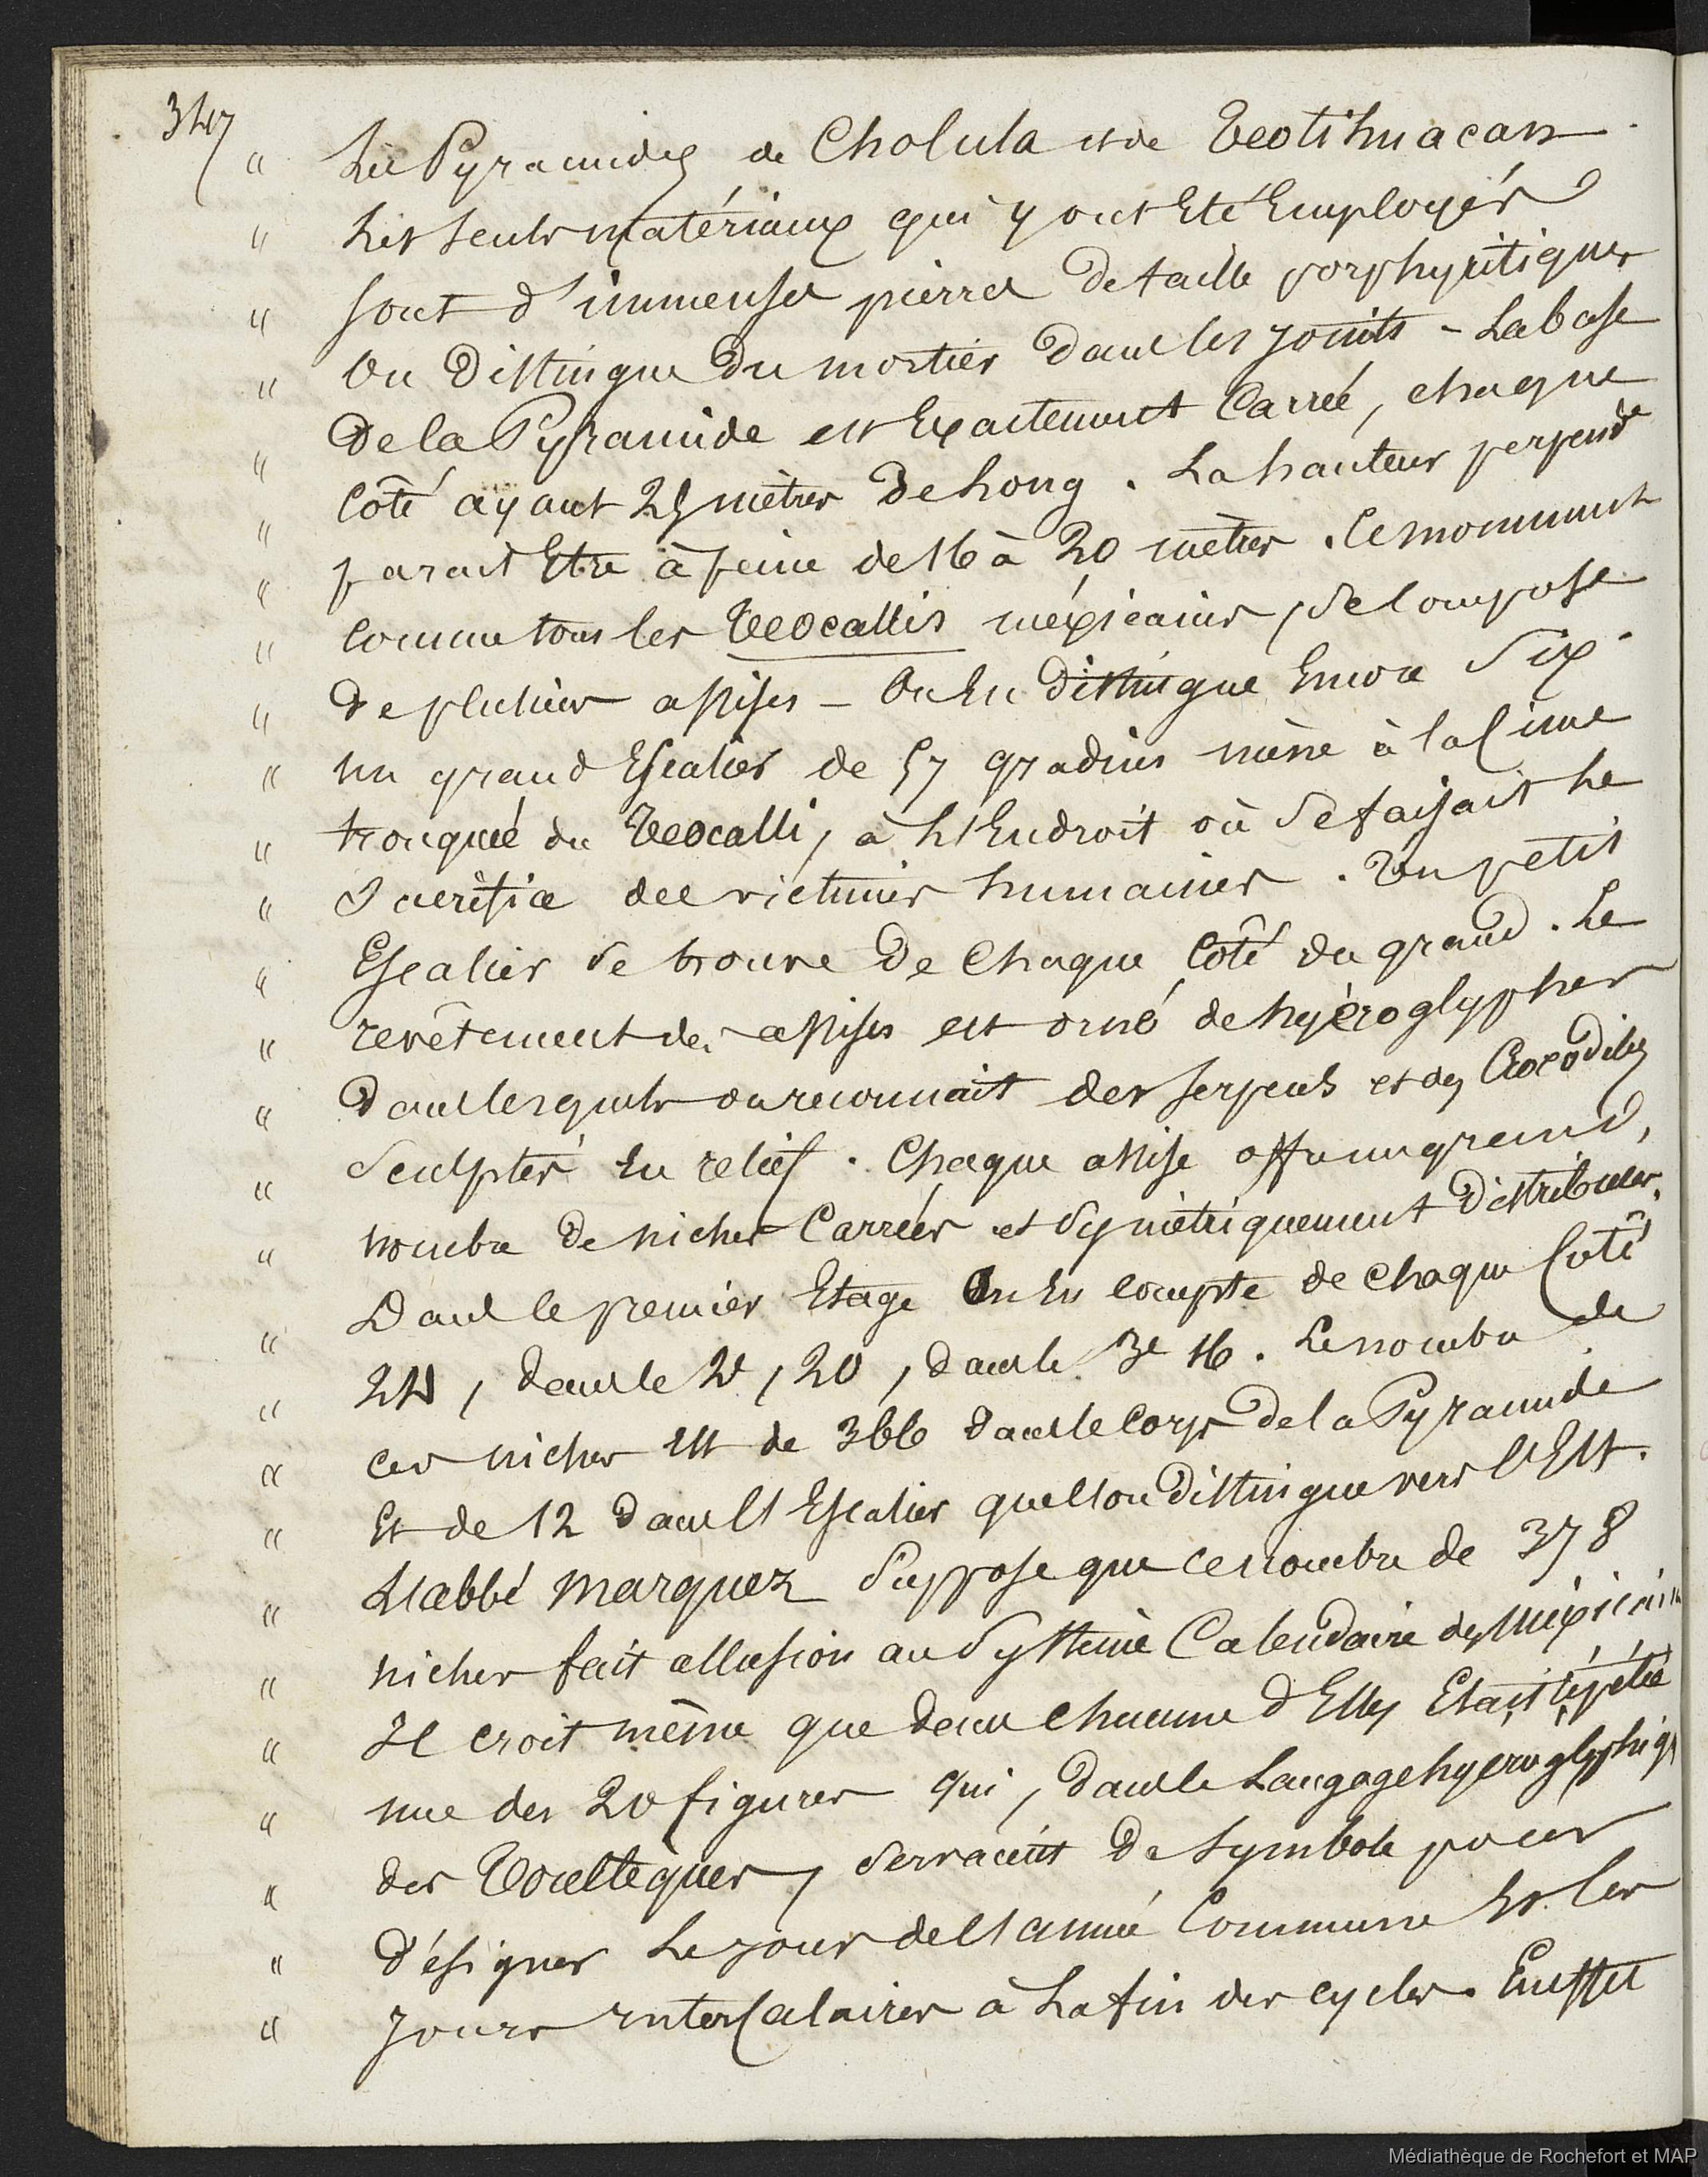 347
" Les Pyramides de Cholula et de Teotihuacan.
" Les seuls matériaux qui y ont Eté Employés
" sont d'immenses pierres de taille porphyritiques
" On distingue du mortier dans les joints - La base
" De la Pyramide est Exactement Carrée, chaque
" Côté ayant 25 mètres de Long. La hauteur perpendre
" parait Etre à peine de 16 à 20 mètres. Ce monument
" Comme tous les Teocallis méxicains, se Compose
" de plusieurs assises - On En distingue Encore Six.
" un grand Escalier de 57 gradins mène à la Cime
" tronquée du Teocalli, à L'Endroit où se faisait Le
" Sacrifice des victimes humaines. Un petit
" Escalier se trouve de Chaque Côté du grand. Le
" revêtement des assises est orné de hyéroglyphes
" Dans lesquels on reconnait des serpens et des Crocodiles
" Sculptés En relief. Chaque assise offre un grand,
" nombre de niches Carrées et symétriquement distribuées.
" Dans le premier Etage On En Compte de chaque Coté
" 24, dans le 2e, 20, dans le 3e 16. Le nombre de
" ces niches Est de 366 dans le Corps de la Pyramide
" Et de 12 dans l'Escalier que l'on distingue vers l'Est.
" L'abbé Marquez Suppose que ce nombre de 378
" niches fait allusion au Systême Calendaire des Méxicains
" Il croit même que dans chacune d'Elles Etait répétée
" une des 20 figures qui, dans le Langage hyéroglyphiqe
" des Toultèques, Servaient de Symbole pour
" d'ésigner Le jour de l'année Commune Et Les
" jours interCalaires à La fin des cycles. En effet
Médiathèque de Rochefort et MAP